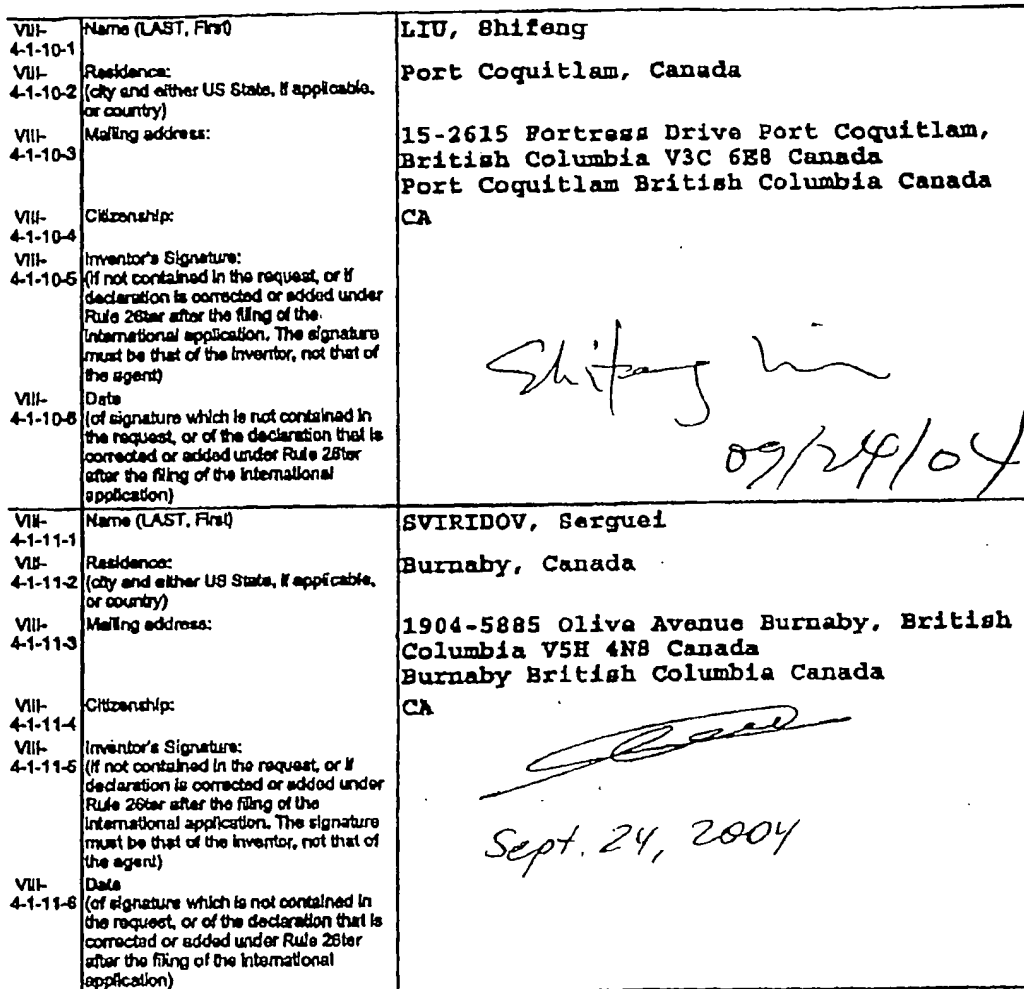 VIII-4-1-10-1 Name (LAST, First) LIU, Shifeng
VIII-4-1-10-2 Residence: Port Coquitlam, Canada
(city and either US State, if applicable,
or country)
VIII-4-1-10-3 Mailing address: 15-2615 Fortress Drive Port Coquitlam,
British Columbia V3C 6E8 Canada
Port Coquitlam British Columbia Canada
VIII-4-1-10-4 Citizenship: CA
VIII-4-1-10-5 Inventor's Signature:
(if not contained in the request, or if
declaration is corrected or added under
Rule 26ter after the filing of the
international application. The signature
must be that of the inventor, not that of
the agent)
Shifeng Liu
VIII-4-1-10-6 Date
(of signature which is not contained in
the request, or of the declaration that is
corrected or added under Rule 26ter
after the filing of the international
application)
09/24/04
VIII-4-1-11-1 Name (LAST, First) SVIRIDOV, Serguei
VIII-4-1-11-2 Residence: Burnaby, Canada
(city and either US State, if applicable,
or country)
VIII-4-1-11-3 Mailing address: 1904-5885 Olive Avenue Burnaby, British
Columbia V5H 4N8 Canada
Burnaby British Columbia Canada
VIII-4-1-11-4 Citizenship: CA
VIII-4-1-11-5 Inventor's Signature:
(if not contained in the request, or if
declaration is corrected or added under
Rule 26ter after the filing of the
international application. The signature
must be that of the inventor, not that of
the agent)
Sept. 24, 2004
VIII-4-1-11-6 Date
(of signature which is not contained in
the request, or of the declaration that is
corrected or added under Rule 26ter
after the filing of the international
application)